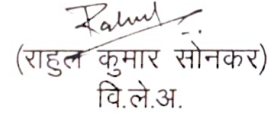 Rahul
(राहुल कुमार सोनकर)
वि.ले.अ.